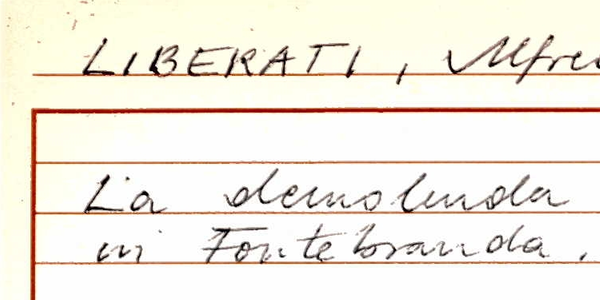 LIBERATI, Alfre
La demolenda
in Fontebranda.